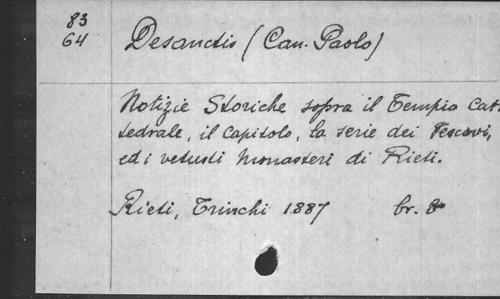 83
64
Desanctis (Can. Paolo)
Notizie Storiche sopra il Tempio Cat-
tedrale, il Capitolo, la serie dei Vescovi,
ed i vetusti Monasteri di Rieti.
Rieti, Trinchi 1887 br. 8°